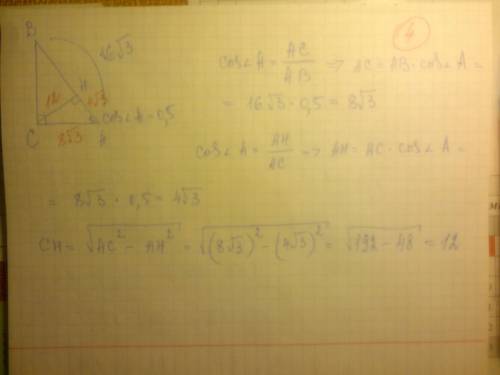 4
B
16√3
H
12
4√3
cos∠A=0,5
C
8√3
A
cos∠A = AC/AB => AC = AB · cos∠A =
= 16√3 · 0,5 = 8√3
cos∠A = AH/AC => AH = AC · cos∠A =
= 8√3 · 0,5 = 4√3
CH = √(AC² − AH²) = √((8√3)² − (4√3)²) = √(192 − 48) = 12